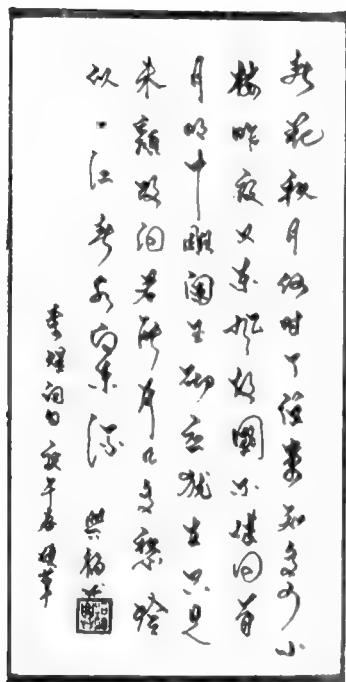 春花秋月何时了往事知多少小
楼昨夜又东风故國不堪回首
月明中雕阑玉砌应犹在只是
朱颜改问君能有几多愁恰
似一江春水向东流
李煜词 午春